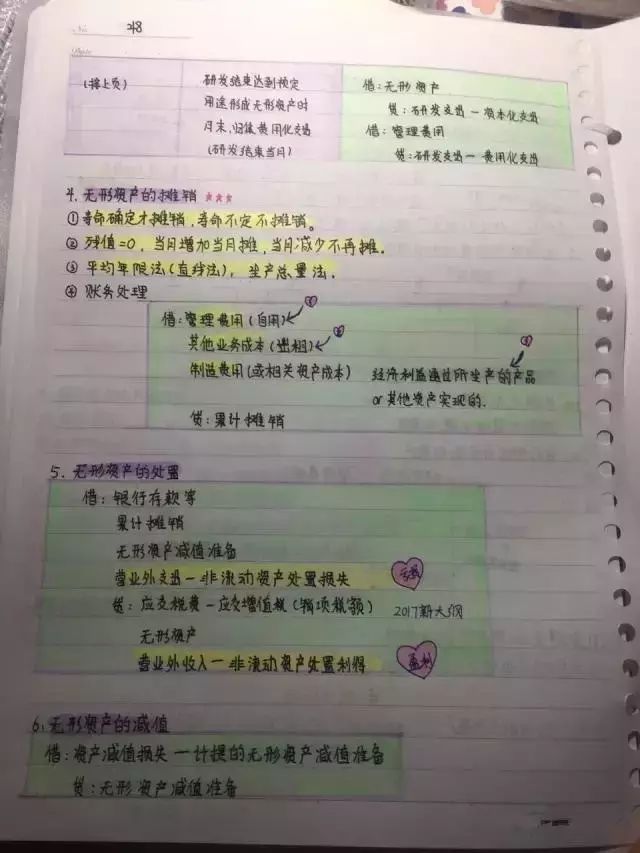 No. 48
Date
(接上页)
研发结束达到预定
用途形成无形资产时
月末,归集费用化支出
(研发结束当月)
借:无形资产
贷:研发支出—资本化支出
借:管理费用
贷:研发支出—费用化支出
4.无形资产的摊销 ★★★
①寿命确定才摊销,寿命不定不摊销。
②残值=0,当月增加当月摊,当月减少不再摊。
③平均年限法(直线法),生产总量法.
④账务处理
借:管理费用(自用)
其他业务成本(出租)
制造费用(或相关资产成本) 经济利益通过所生产的产品
or其他资产实现的.
贷:累计摊销
5.无形资产的处置
借:银行存款等
累计摊销
无形资产减值准备
营业外支出—非流动资产处置损失
贷:应交税费—应交增值税(销项税额) 2017新大纲
无形资产
营业外收入—非流动资产处置利得 盈利
6.无形资产的减值
借:资产减值损失—计提的无形资产减值准备
贷:无形资产减值准备